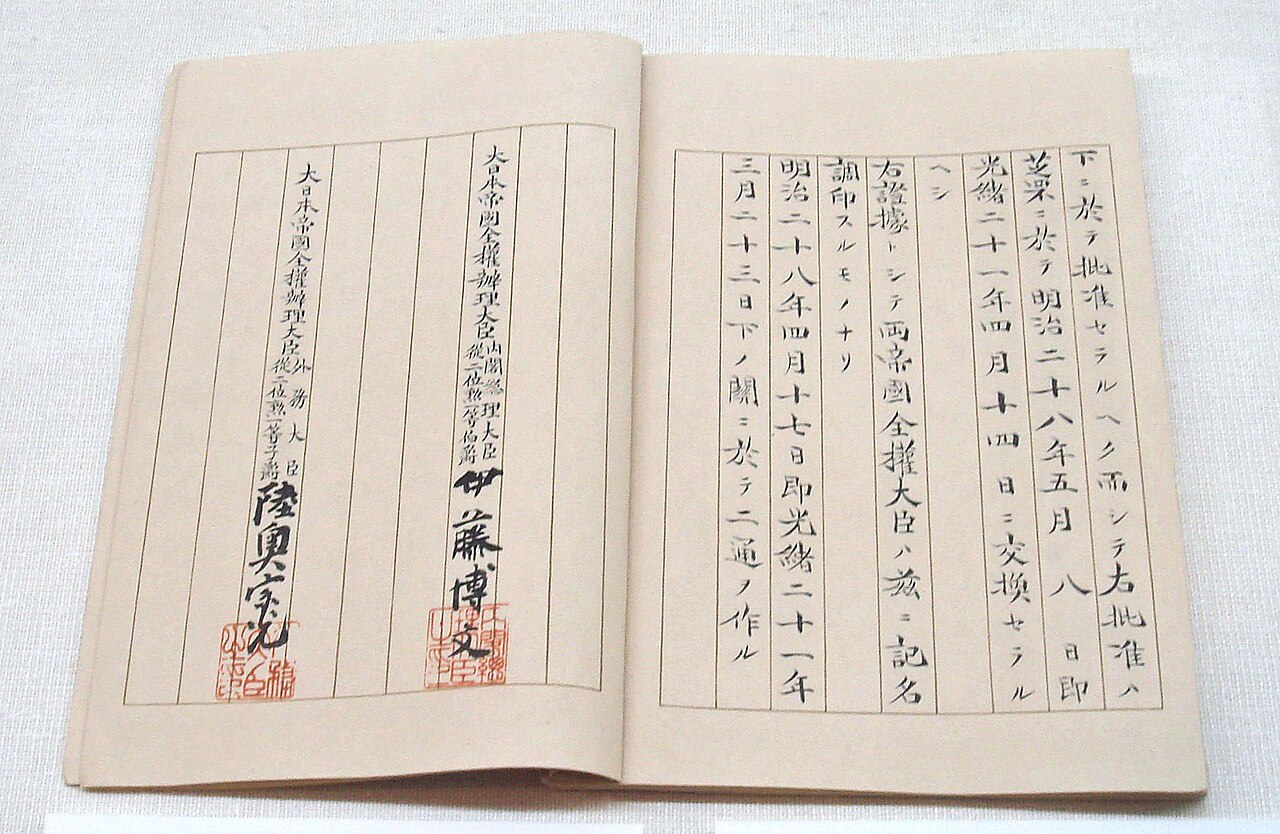 下ニ於テ批准セラルヘク而シテ右批准ハ
芝罘ニ於テ明治二十八年五月八日即
光緒二十一年四月十四日ニ交換セラル
ヘシ
右證據トシテ兩帝國全權大臣ハ茲ニ記名
調印スルモノナリ
明治二十八年四月十七日即光緒二十一年
三月二十三日下ノ關ニ於テ二通ヲ作ル
大日本帝國全權辦理大臣
內閣總理大臣
從二位勲一等伯爵
伊藤博文
大日本帝國全權辦理大臣
外務大臣
從二位勲一等子爵
陸奥宗光